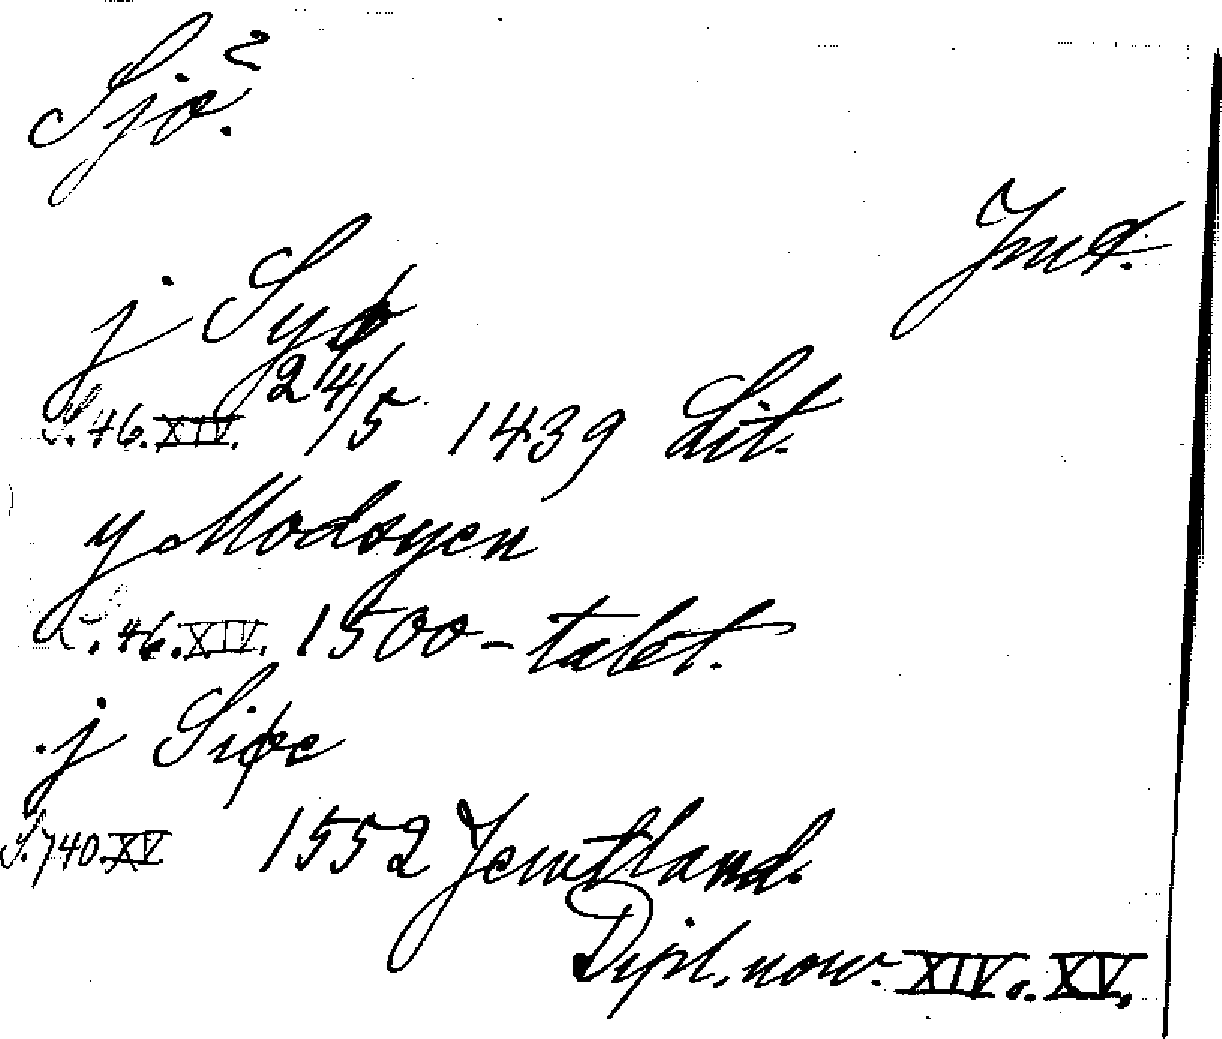 Sjö?
Jmt.
j Syø
S. 46. XIV. 24/5 1439 Lit.
y Modsyen
S. 46. XIV. 1500-talet.
j Siøe
S. 740. XV 1552 Jemtland.
Dipl. norv. XIV. XV.